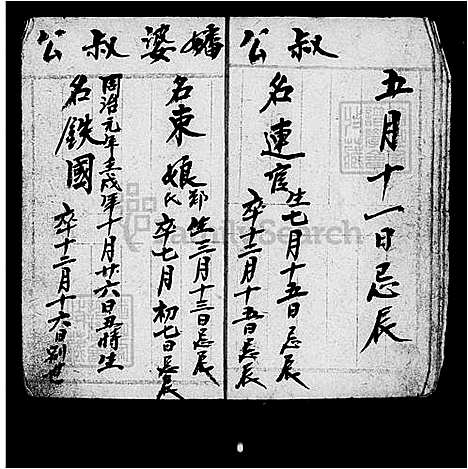 五月十一日忌辰
叔公
名連官
生七月十五日忌辰
卒十二月十五日忌辰
嬸婆
名東娘
鄭氏
生三月十三日忌辰
卒七月初七日忌辰
叔公
同治元年壬戌年十月廿六日丑時生
名鉄國
卒十二月十六日別世
FamilySearch